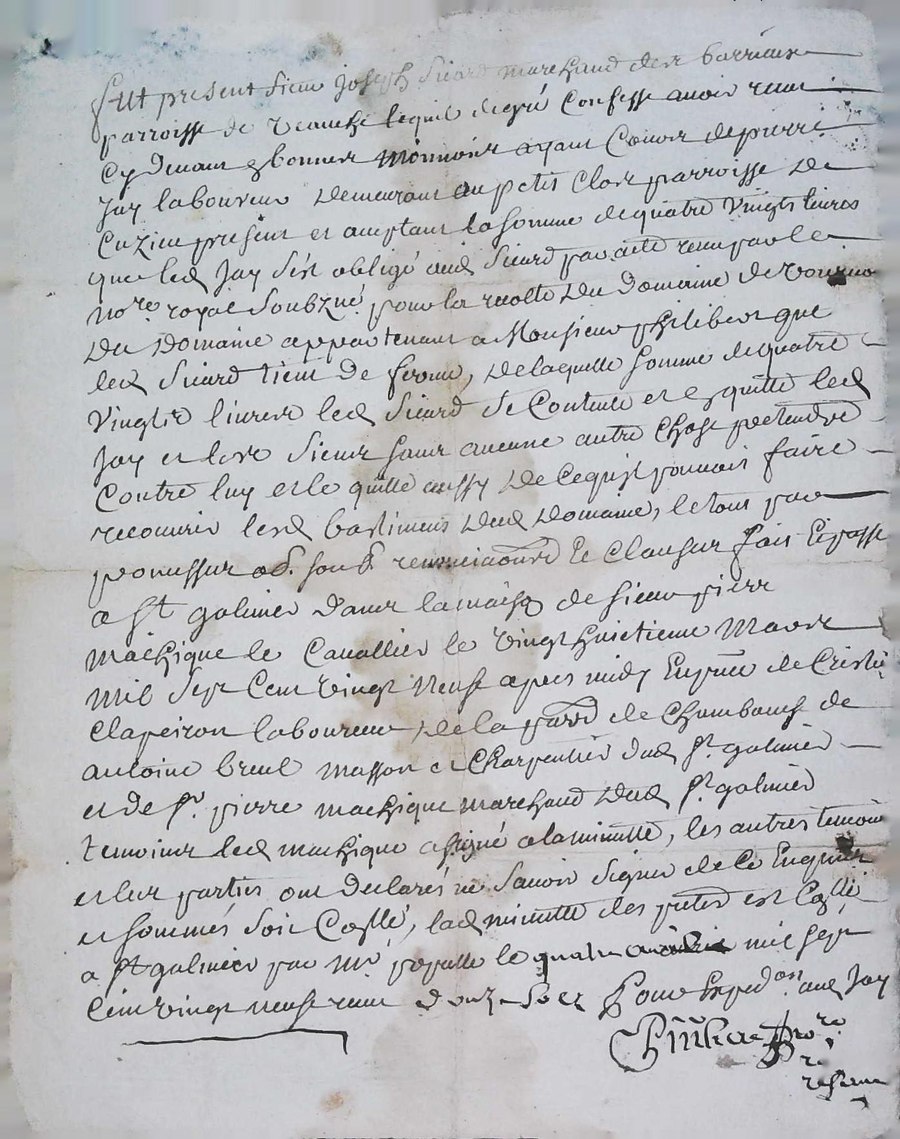 fut present sieur Joseph Sicard marchand des barriaux
parroisse de veauche lequel degré confesse avoir receu
cy devant en bonnes monnoies ayant Cours de pierre
Jay laboureur demeurant au petit Clos parroisse de
Cuzieu present et aceptant la somme de quatre vingts livres
que led Jay s'est obligé aud Sicard par acte receu par le
nore royal soubzné pour la recolte du domaine de
du domaine appartenant a Monsieur philibert que
led Sicard tient de ferme, de laquelle somme de quatre
vingts livres led Sicard se Contente et en quitte led
Jay et les siens sans aucune autre chose pretendre
Contre luy et le quitte aussy de ce qu'il pouvoit faire
recouvrir les bastiments dud domaine, le tout par
promesses renonciations et clauses fait et passé
a St galmier dans la maison de sieur pierre
machique le Cavallier le vingt huictieme Mars
mil sept Cent vingt neuf apres midy En pnce de
Clapeiron laboureur de la parre de Chambeuf de
antoine breul masson et Charpentier dud St galmier
et de sr pierre machique marchand dud St galmier
temoins led machique a signé a la minutte, les autres temoins
et les parties ont declarés ne savoir signer de ce Enquis
et sommés soit Collé, lad minutte des putes est Collé
a St galmier par Mr payalle le quatre mil sept
Cent vingt neuf receu douze sols Pour Expedon aud Jay
nore